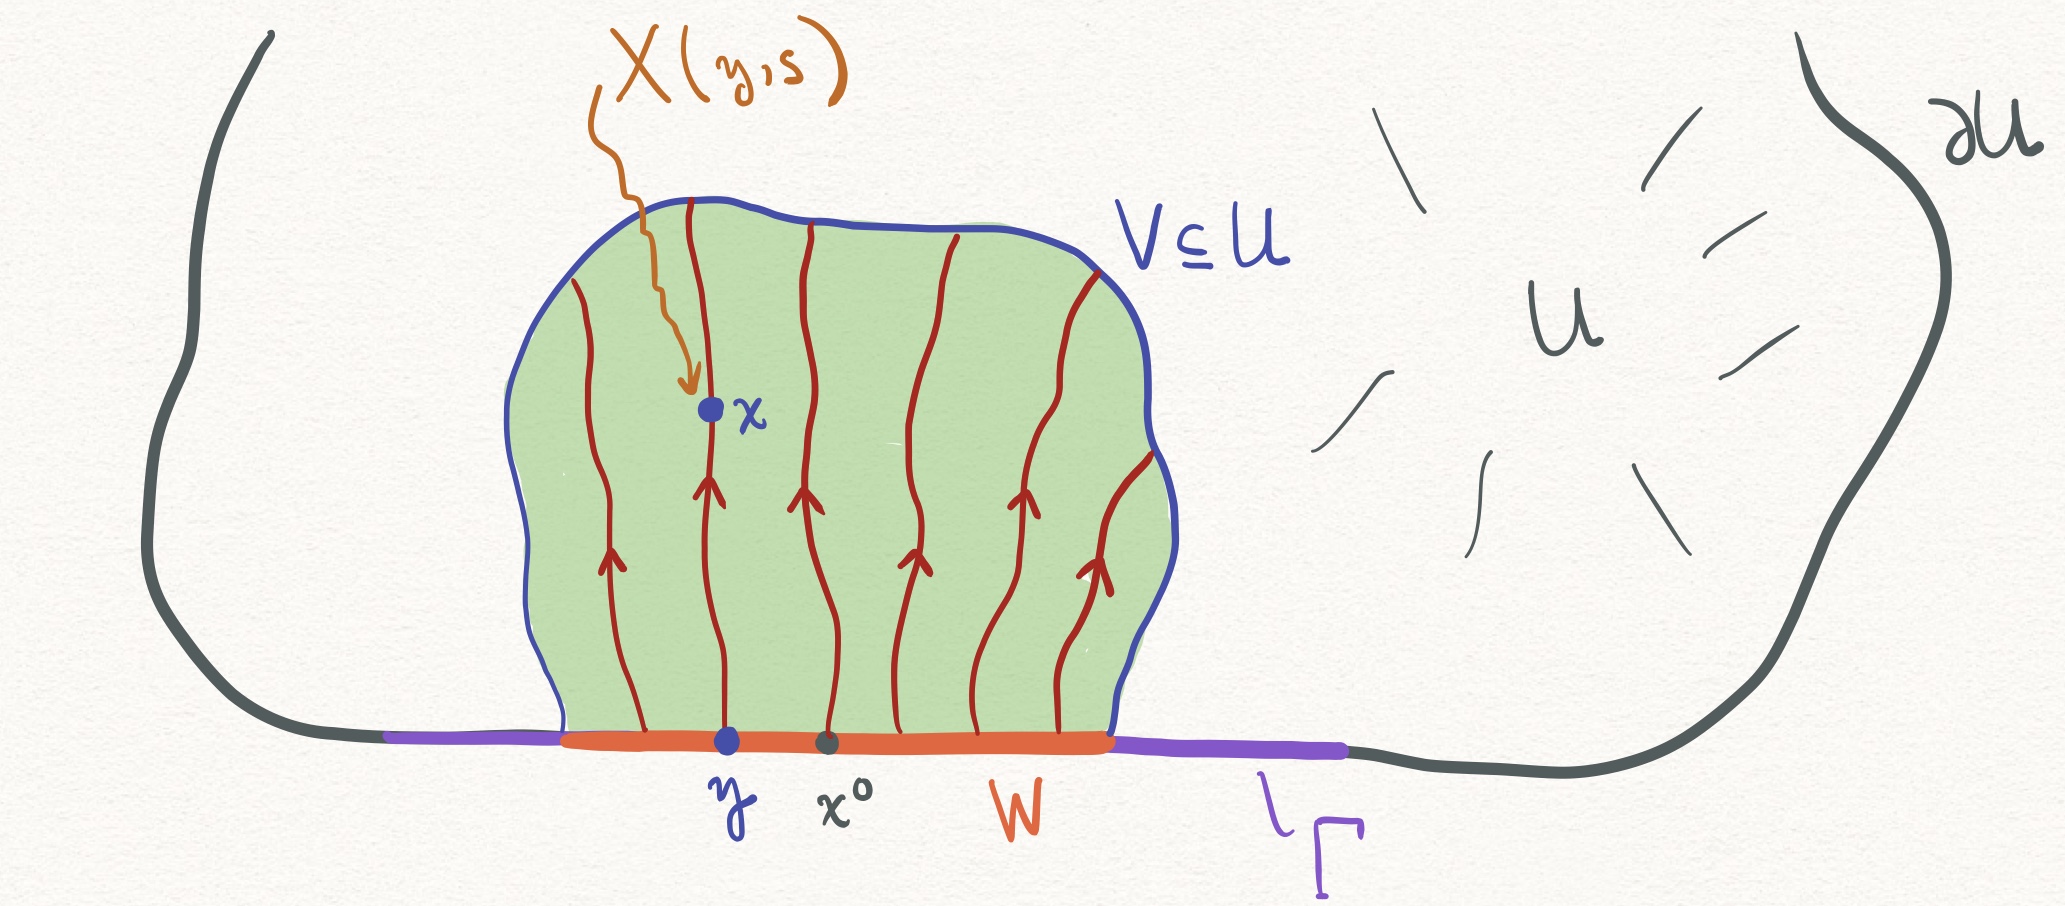 X(y,s)
∂U
V ⊆ U
U
x
y
x⁰
W
Γ